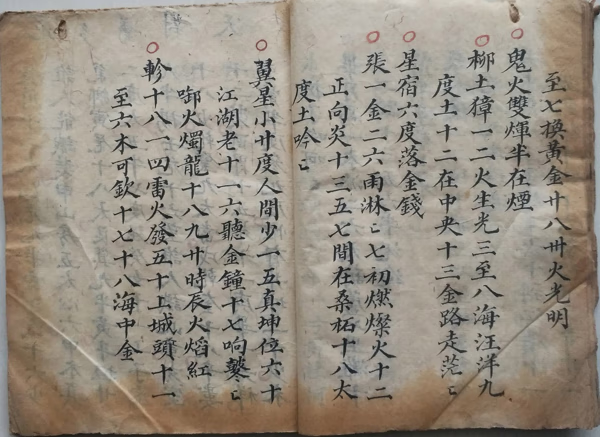 至七換黃金廿八卅火光明
鬼火雙煇半在煙
柳土獐一二火生光三至八海汪洋九
度土十二在中央十三金路走茫〻
星宿六度落金錢
張一金二六雨淋〻七初燃燦火十二
正向炎十三五七間在桑柘十八太
度土吟〻
翼星小廿度人間少一五真坤位六十
江湖老十一六聽金鐘十七响鼕〻
啣火燭龍十八九廿時辰火熖紅
軫十八一四雷火發五十上城頭十一
至六木可欽十七十八海中金